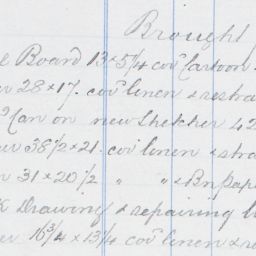 Brought
Board 13 x 5 1/4 cov^g Cartoon
28 x 17. cov^g linen & restra
Man on new Stretcher 42
38 1/2 x 21. cov^g linen & stra
31 x 20 1/2 " " & Bn pap
Drawing & repairing
16 3/4 x 13 1/4 cov^g linen & re